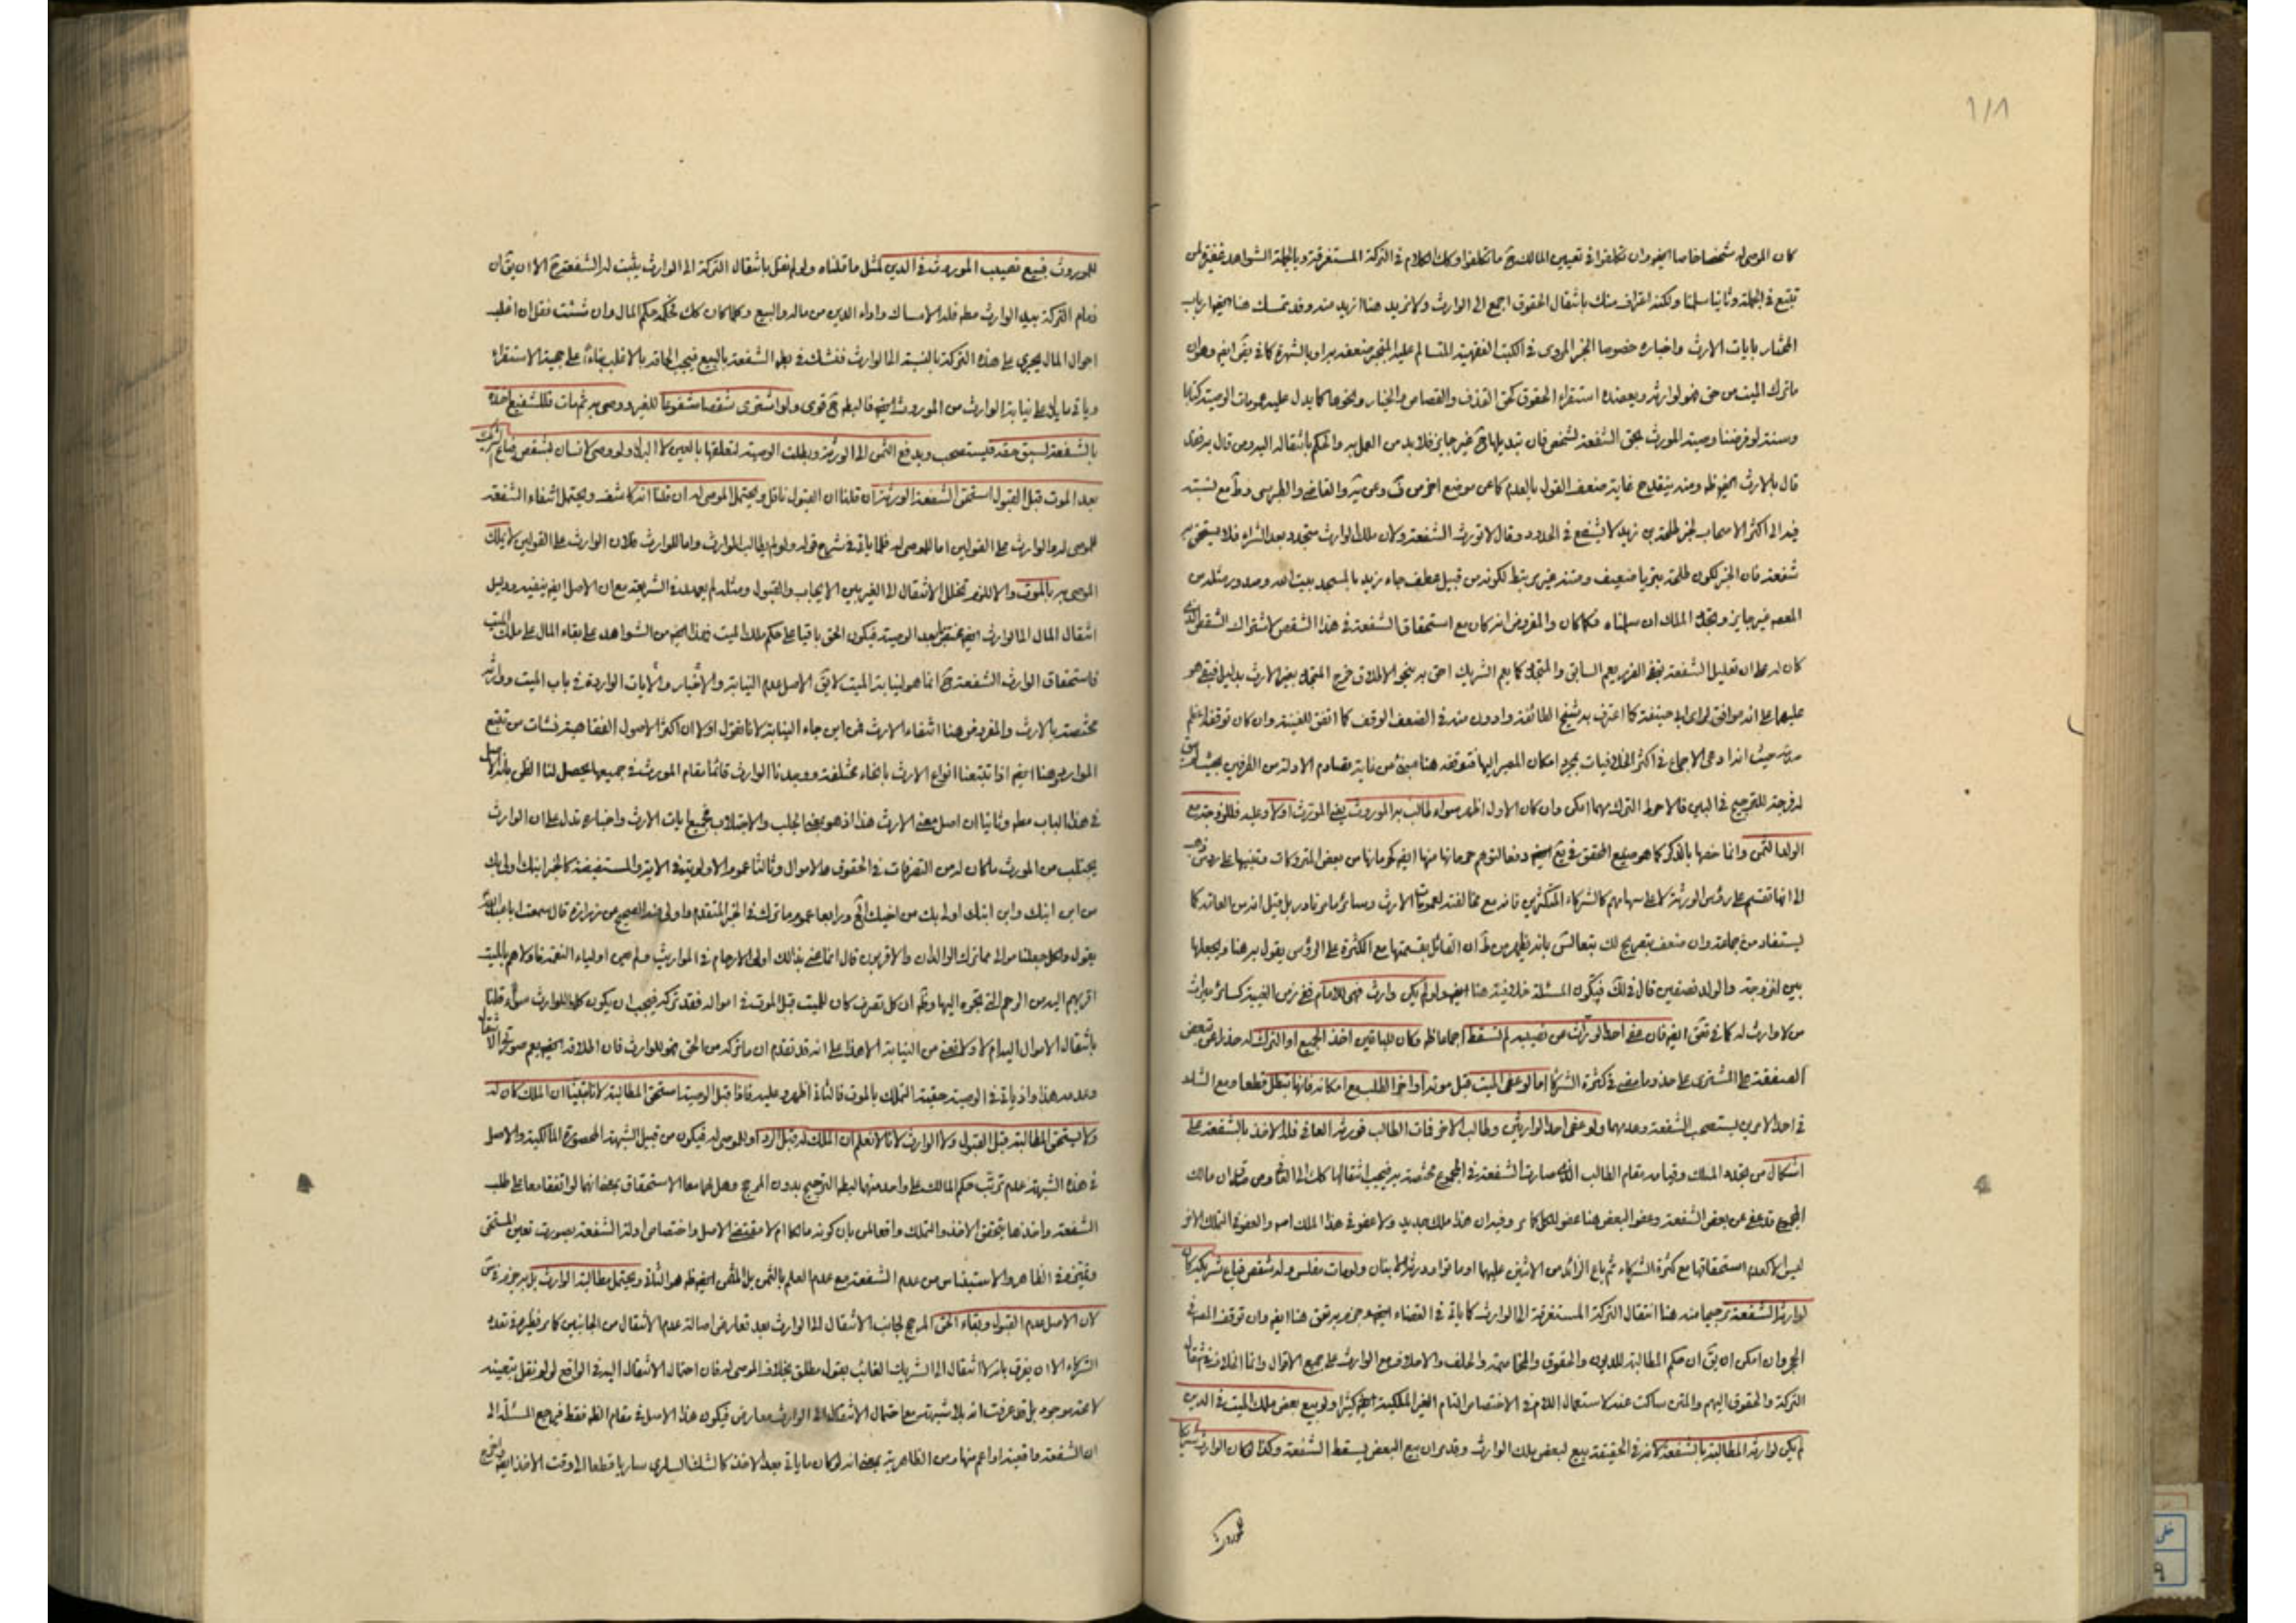 كان الموصى له شخصا خاصا ايضا وان تكلفوا في تعيين المالك ح ما تكلفوا وكك الكلام في التركة المستغرقة وبالجملة الشواهد
تتبع في الجملة وثانيا سلمنا ولكنه اعتراف منك بانتقال الحقوق اجمع الى الوارث ولا نريد هنا ازيد منه وقد تمسك هنا ايضا ارباب
المختار بايات الارث واخباره خصوصا الخبر المروى في الكتب الفقهية المتسالم عليه المنجبر ضعفه بها وبالشهرة كما في ايضا وهو ان
ما ترك الميت من حق فهو لوارثه ويعضده استقراء الحقوق كحق القذف والقصاص والخيار ونحوها كما يدل عليه عمومات الوصية كتابا
وسنة لو فرضنا وصية المورث بحق الشفعة لشخص فان تبديلها ح غير جايز فلا بد من العمل به والحكم بانتقاله اليه ومن قال به
قال بالارث ايضا ومنه ينقدح غاية ضعف القول بالعدم كما عن موضع اخر من وعن والقاضي والطبرسي مع نسبته
فيه الى اكثر الاصحاب لخبر طلحة بن زيد لا يشفع في الحدود وقال لا تورث الشفعة ولان ملك الوارث متجدد بعد الشراء فلا يستحق به
شفعة فان الخبر لكون طلحة بتريا ضعيف ومتنه غير مرتبط لكونه من قبيل عطف جاء زيد بالمسجد بيت الله وصدور مثله من
المعصوم غير جايز وتجدد الملك ان سلمناه فكما كان والمفروض انه كان مع استحقاق الشفعة في هذا الشقص لاشتراك الشقص الذي
كان له على ان تعليل الشفعة بنفي الضرر يعم السابق والمتجدد كما يعم الشريك احق به بنحو الاطلاق خرج المتجدد بغير الارث بدليل فبقي هو
عليهما على انه موافق لراى ابي حنيفة كما اعترف به شيخ الطائفة وادون منه في الضعف الوقف كما اتفق للغنية وان كان توقفه
حيث انه ادعى الاجماع في اكثر الخلافيات بمجرد امكان المصير اليها فتوقفه هنا مبنى من غاية تصادم الادلة من الطرفين بحيث
له فرجة للترجيح في البين فالاحوط الترك مهما امكن وان كان الاول اظهر سواء طالب به الموروث يعني المورث اولا وعليه فللزوجة مع
الولد الثمن وانما خصها بالذكر كما هو صنيع المحقق في ايضا دفعا لتوهم حرمانها منها ايضا كحرمانها من بعض المتروكات وتنبيها على
الى انها تقسم على رؤس الورثة لا على سهامهم كالشركاء المتكثرين فانه مع مخالفته لعمومات الارث وسائر نادر بل قيل انه من العامة كما
يستفاد من جماعة وان ضعف بتصريح لك بانه يظهر من ان القائل بقسمتها مع الكثرة على الرؤس يقول به هنا ويجعلها
بين الزوجة والولد نصفين قال في لك فيكون المسئلة خلافية هنا ايضا ولو لم يكن وارث فهى للامام في زمن الغيبة كسائر ميراث
من لا وارث له كما في ايضا فان عفى احد الوراث من نصيبه لم تسقط اجماعا ظ وكان للباقين اخذ الجميع او الترك حذرا عن تبعض
الصفقة على المشترى على حذو ما مضى في كثرة الشركاء اما لو عفى الميت قبل موته او اخر الطلب مع امكانه فانها تبطل قطعا ومع الشك
في احد الامرين يستصحب الشفعة وعدمهما ولو عفى احد الوارثين وطالب الاخر فمات الطالب فورثه العافي فله الاخذ بالشفعة على
اشكال من تجدد الملك وقيامه مقام الطالب الذي صارت الشفعة في المجموع مختصة به فيجب انتقالها كلك الى العافي ومن قبل ان مالك
المجموع قد عفى عن بعض الشفعة وعفو البعض هنا عفو للكل كما مر وفيه ان هذا ملك جديد ولا عفو في هذا الملك اصلا والعفو في الملك الاخر
ليس الا كعدم استحقاقها مع كثرة الشركاء ثم باع الزائد من الاثنين عليهما او ماتوا وورثه اثنان ولو مات مفلس وله شقص فباع شريكه كان
لوارثه الشفعة ترجيحا منه هنا انتقال التركة المستغرقة الى الوارث كما ياتي في القضاء جزم به هنا ايضا وان توقف المصنف في
الحجر وان امكن ان يق ان حكم المطالبة للديون والحقوق والمخاصمة والحلف والاملاك مع الوارث على جميع الاقوال وانما الخلاف في انتقال
التركة والحقوق اليهم والمتن ساكت عنه لاستعمال اللام في الاختصاص التام الغير الملكية ايضا كثيرا ولو بيع بعض ملك الميت في الدين
لم يكن لوارثه المطالبة بالشفعة لانه في الحقيقة بيع لبعض ملك الوارث وقد مر ان بيع البعض يسقط الشفعة وكذا لو كان الوارث شريكا
للموروث
للموروث فبيع نصيب الموروث في الدين لمثل ما قلناه ولو لم نقل بانتقال التركة الى الوارث يثبت له الشفعة ح الا ان يق ان
زمام التركة بيد الوارث مطلقا فله الامساك واداء الدين من ماله والبيع وكلما كان كك فحكمه حكم المال وان شئت فقل ان اغلب
احوال المال يجرى على هذه التركة بالنسبة الى الوارث فنشك في الشفعة بالبيع فيجب الحاقه بالاغلب بناء على حجية الاستقراء
وياتي ما يدل على نيابة الوارث من الموروث ايضا ح قوى ولو اشترى شقصا مشفوعا للغير ووصى به ثم مات فللشفيع اخذه
بالشفعة لسبق حقه فليستصحب ويدفع الثمن الى الورثة وبطلت الوصية لتعلقها بالعين لا البدل ولو وصى لانسان بشقص فباع الشريك
بعد الموت قبل القبول استحق الشفعة الورثة ان قلنا ان القبول ناقل ويحتمل الموصى له ان قلنا انه كاشف ويحتمل انتفاء الشفعة
للموصى له والوارث على القولين اما للموصى له فلما ياتي في شرح قوله ولو لم يطالب الوارث واما للوارث فلان الوارث على القولين لا يملك
الموصى به بالموت والا لزم تخلل الانتقال الى الغير بين الايجاب والقبول ومثله لم يعهد في الشريعة مع ان الاصل ايضا ينفيه ودليل
انتقال المال الى الوارث بعد الوصية فيكون الحق باقيا على حكم ملك الميت فهذا ايضا من الشواهد على بقاء المال على ملك الميت
فاستحقاق الوارث الشفعة ح انما هو لنيابة الميت لا يق الاصل عدم النيابة والاخبار والايات الواردة في باب الميت ووارثه
مختصة بالارث والمفروض هنا انتفاء الارث فمن اين جاء النيابة لانا نقول اولا ان اكثر الاصول الفقاهية نشات من تتبع
الموارد وهنا ايضا اذا تتبعنا انواع الارث بانحاء مختلفة ووجدنا الوارث قائما مقام المورث في جميعها يحصل لنا الظن بهذا الاصل
في هذا الباب مطلقا وثانيا ان اصل معنى الارث هذا اذ هو بمعنى الجلب والاجتلاب فجميع ايات الارث واخباره تدل على ان الوارث
يجتلب من المورث ما كان له من التصرفات في الحقوق والاموال وثالثا عموم الاولوية في الاية والمستفيضة كالخبر ابنك اولى بك
من ابن ابنك وابن ابنك اولى بك من اخيك الخ ورابعا عموم ما ترك في الخبر المتقدم الصحيح عن زرارة قال سمعت ابا عبد الله
يقول ولكل جعلنا موالي مما ترك الوالدان والاقربون قال انما عنى بذلك اولى الارحام في المواريث ولم يعن اولياء النعمة فاولاهم بالميت
اقربهم اليه من الرحم التي تجره اليها وظ ان كل تصرف كان للميت قبل الموت في امواله فقد تركه فيجب ان يكون كلها للوارث سواء قلنا
بانتقال الاموال اليه ام لا ولا نعنى من النيابة الا هذا على انه قد تقدم ان ما تركه من الحق فهو للوارث فان اطلاقه ايضا يعم صورتي الانتقال
وعدمه هذا واذ ياتي في الوصية حقيقة التملك بالموت فالثاني اظهر وعليه فاذا قبل الوصية استحق المطالبة لانا تبينا ان الملك كان له
ولا يستحق المطالبة قبل القبول ولا الوارث لانا لا نعلم ان الملك له قبل الرد او للموصى له فيكون من قبيل الشبهة المحصورة المالكية والاصل
في هذه الشبهة عدم ترتب حكم المالك على واحد منهما الترجيح بدون المرجح وهل لهما معا الاستحقاق بمعنى انهما لو اتفقا معا على طلب
الشفعة واخذها يتحقق الاخذ والتملك واقعا لمن بان كونه مالكا ام لا مقتضى الاصل واختصاص ادلة الشفعة بصورة تعين المستحق
في الظاهر والاستيناس من عدم الشفعة مع عدم العلم بالثمن بل المثمن هو الثاني ويحتمل مطالبة الوارث بل به جزم
لان الاصل عدم القبول وبقاء الحق المرجح لجانب الانتقال الى الوارث بعد تعارض اصالة عدم الانتقال من الجانبين كما مر نظيره في تعدد
الشركاء الا ان يفرق بانه لا انتقال الى الشريك الغائب بقول مطلق بخلاف الموصى له فان احتمال الانتقال اليه في الواقع لو لم نقل بتعينه
لا محة موجود بل قد عرفت انه بلا شبهة مع احتمال الانتقال الى الوارث معارض فيكون هذا الاصل في مقام الظ فقط فيرجع المسئلة الى
ان الشفعة واقعية او اعم منها ومن الظاهرية بمعنى انه لو كان ما ياتي بعد الاخذ كالشك السارى ساريا قطعا الى وقت الاخذ